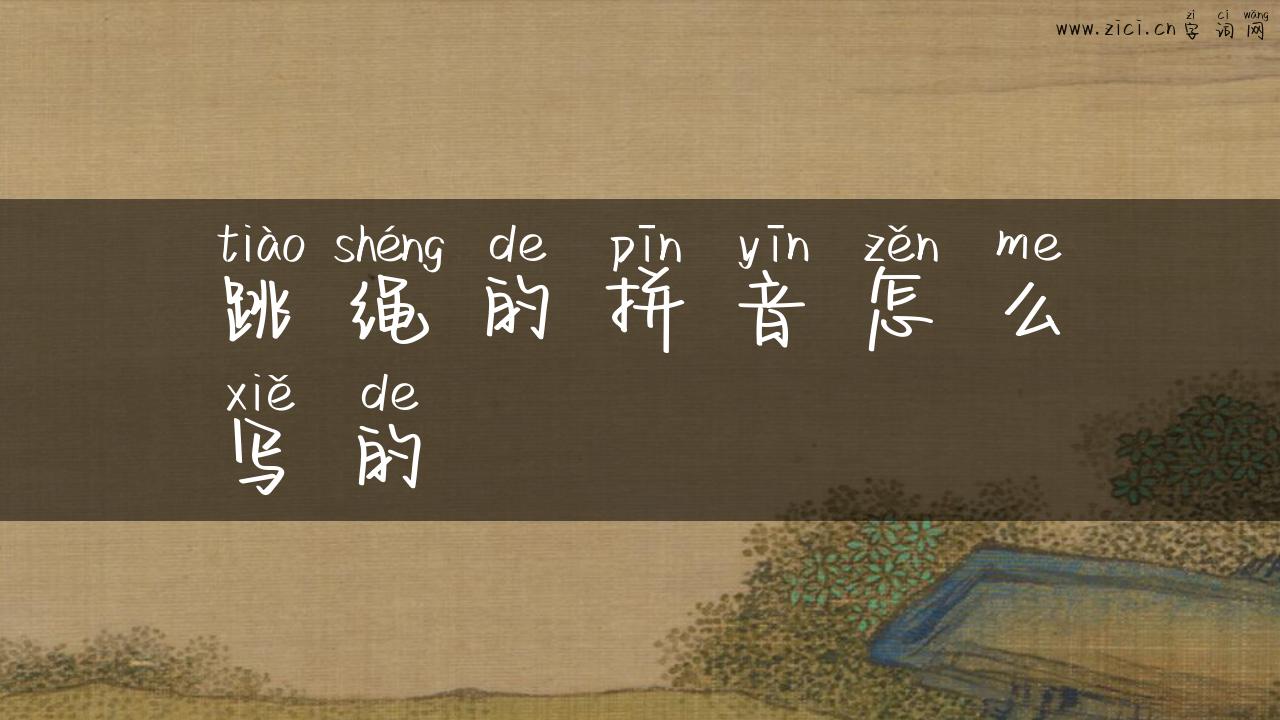 zì cí wǎng
www.zici.cn 字词网
tiào shéng de pīn yīn zěn me
跳绳的拼音怎么
xiě de
写的